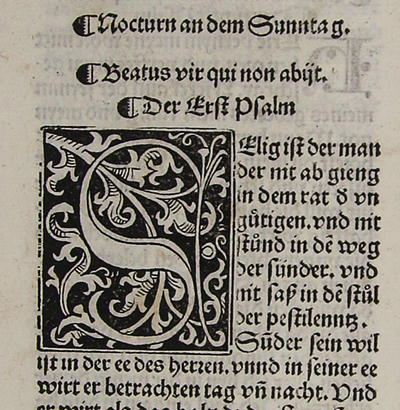 Nocturn an dem Sunntag.
Beatus vir qui non abijt.
Der Erst Psalm
SElig ist der man
der nit ab gieng
in dem rat d̕ vn
gůtigen. vnd nit
stůnd in dē weg
der sünder. vnd
nit saß in dē stůl
der pestilenntz.
Sůder sein wil
ist in der ee des herren. vnnd in seiner ee
wirt er betrachten tag vñ nacht. Vnd